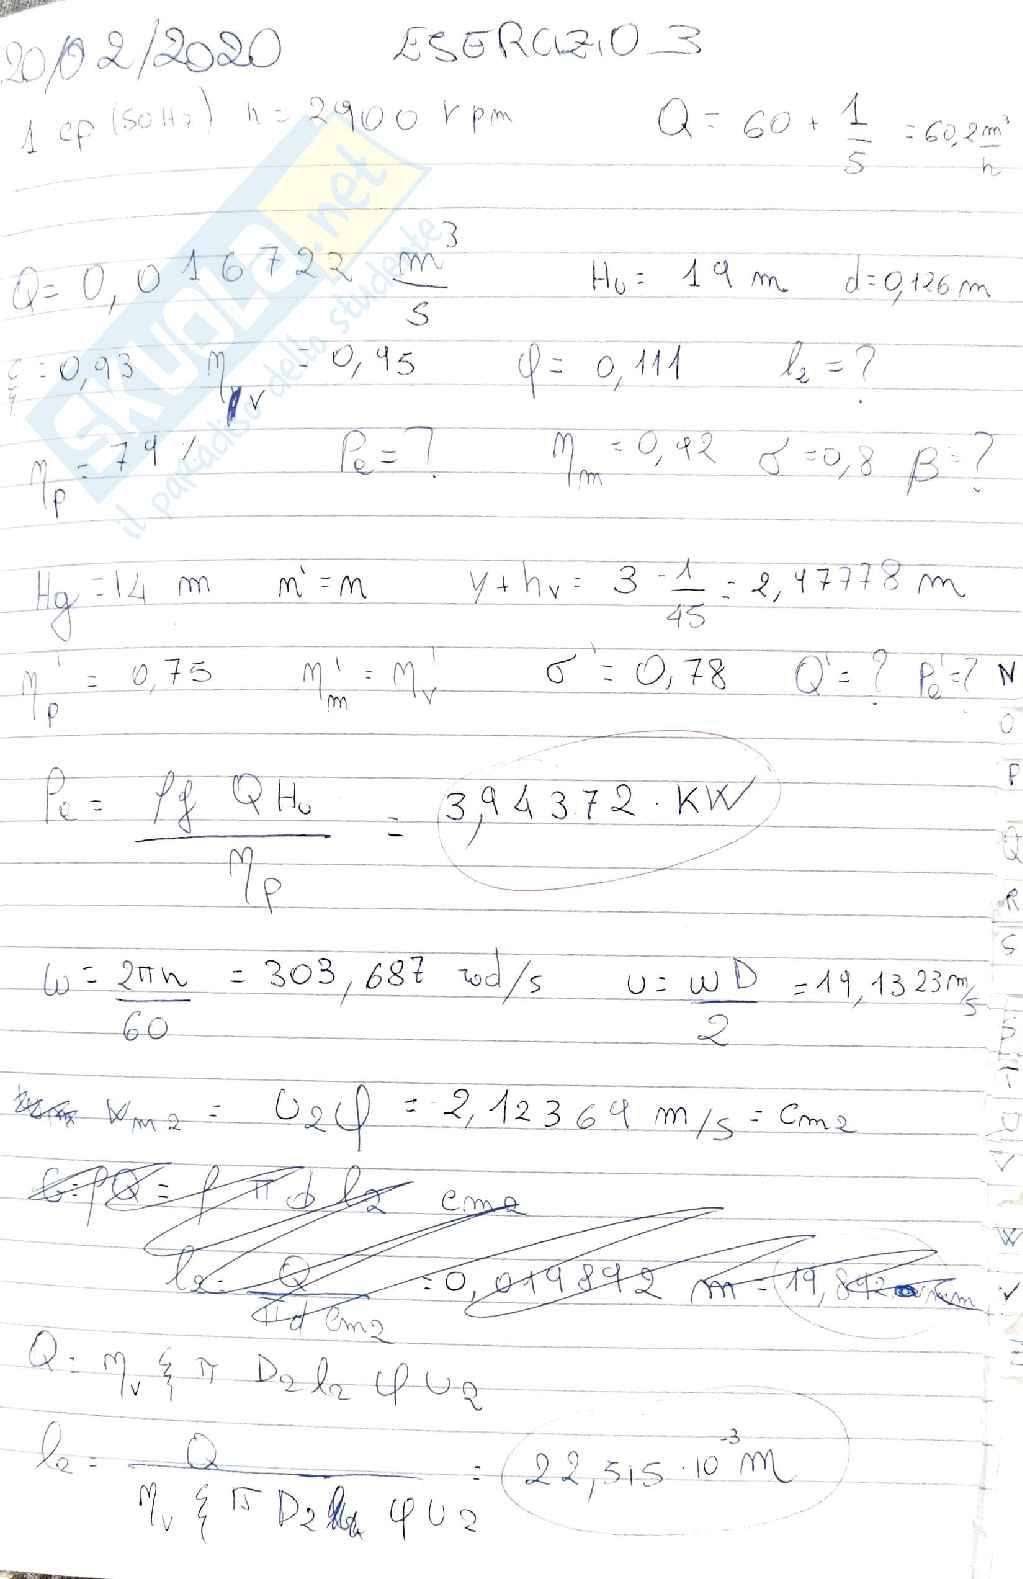 20/02/2020 ESERCIZIO 3
1 cp (50Hz) n = 2900 rpm Q = 60 + 1/5 = 60,2 m³/h
Q = 0,016722 m³/s Hu = 19 m d = 0,126 m
ξ = 0,93 ηv = 0,95 φ = 0,111 l2 = ?
ηp = 79 % Pe = ? ηm = 0,92 σ = 0,8 β = ?
Hg = 14 m n' = n y + hv = 3 - 1/45 = 2,97778 m
ηp' = 0,75 ηm' = ηv' σ' = 0,78 Q' = ? Pe' = ?
Pe = ρg Q Hu / ηp = 3,94372 · KW
ω = 2πn / 60 = 303,687 rad/s u = ωD / 2 = 19,1323 m/s
wm2 = u2φ = 2,12369 m/s = cm2
G = ρQ = ρ π d l2 cm2
l2 = Q / π d cm2 = 0,019892 m = 19,892 mm
Q = ηv ξ π D2 l2 φ u2
l2 = Q / ηv ξ π D2 φ u2 = 22,515 · 10⁻³ m
N
O
P
Q
R
S
W
SKUOLA.net
il paradiso dello studente